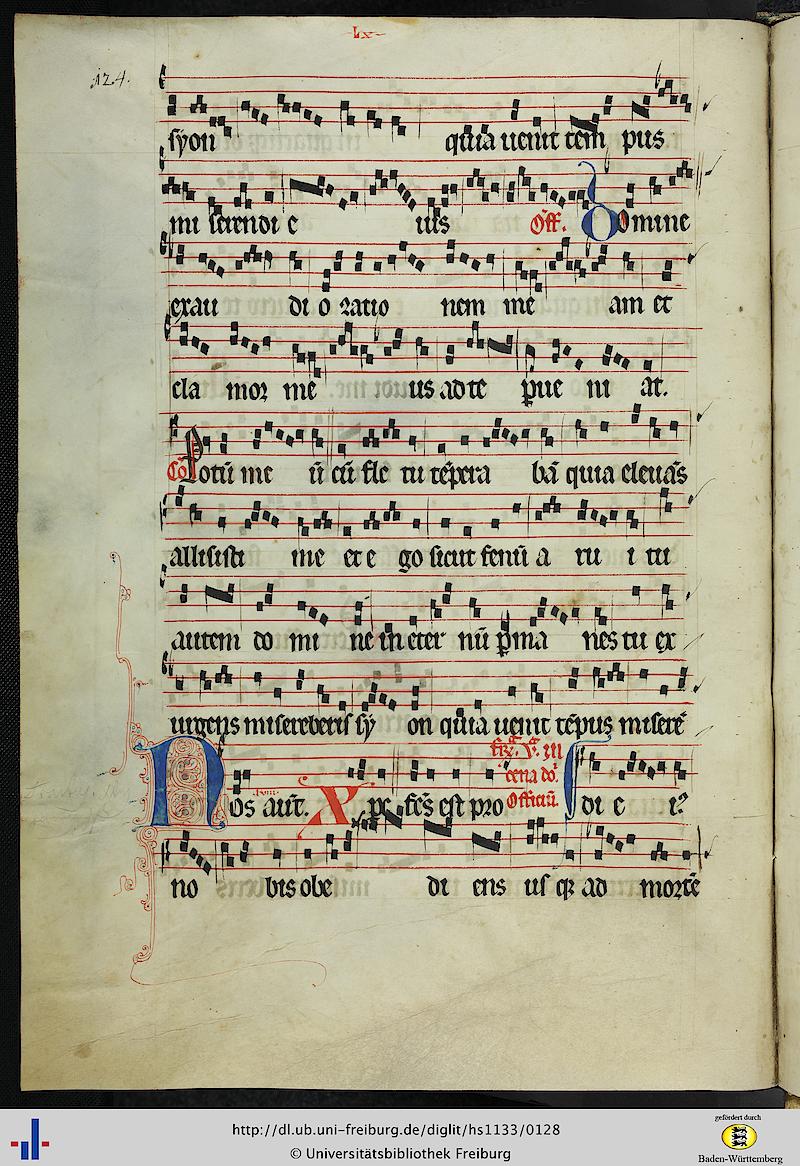 Lx
124.
syon quia uenit tem pus
mi serendi e ius Off. Domine
exau di o ratio nem me am et
cla mor me us ad te pue ni at.
Cō Potū me ū cū fle tu tēpera bā quia eleuās
allisisti me et e go sicut fenū a ru i tu
autem do mi ne in eter nū pma nes tu ex
urgens misereberis sy on quia uenit tēpus miserē
cena do.
Nos aut. Xpc fcs est pro Officiū. di e
no bis obe di ens us q ad mortē
http://dl.ub.uni-freiburg.de/diglit/hs1133/0128
© Universitätsbibliothek Freiburg
gefördert durch
Baden-Württemberg